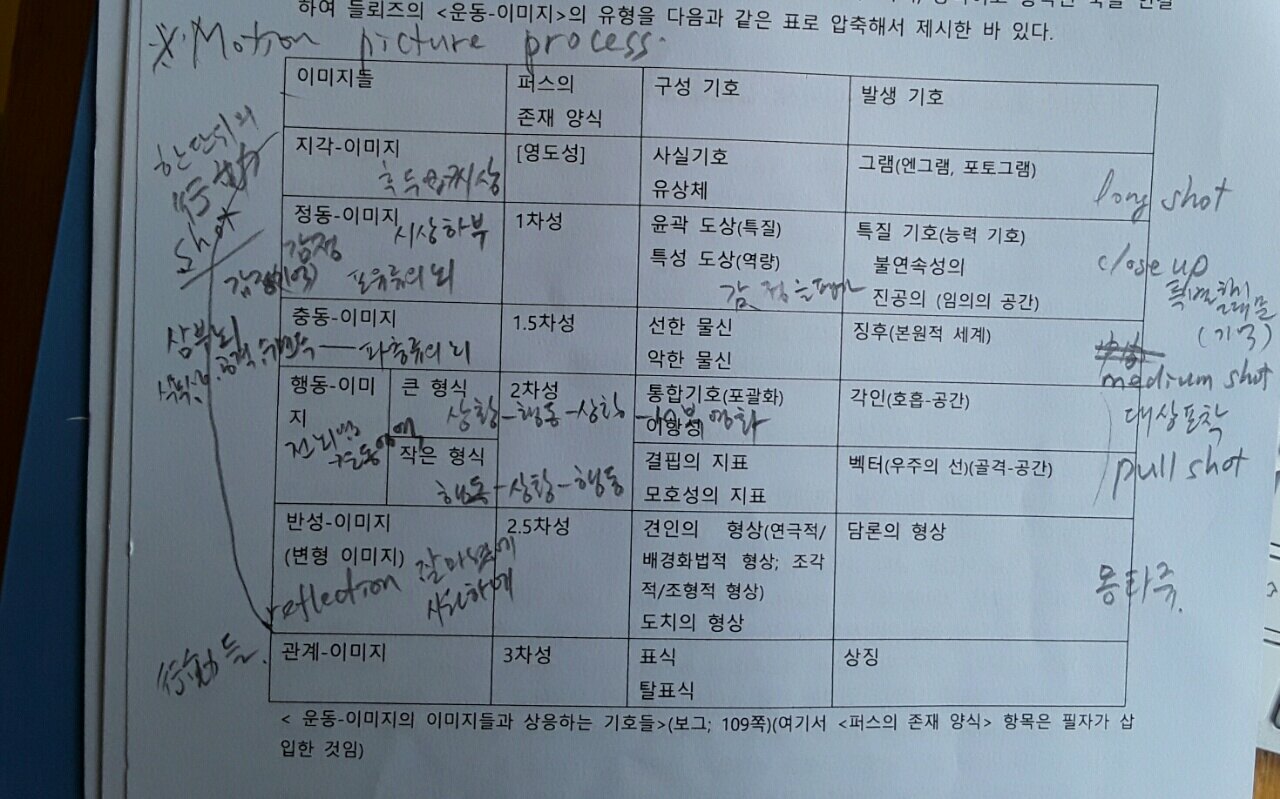 하여 들뢰즈의 <운동-이미지>의 유형을 다음과 같은 표로 압축해서 제시한 바 있다.
※ Motion picture process.
이미지들
퍼스의
존재 양식
구성 기호
발생 기호
한 단위의
shot
지각-이미지
[영도성]
사실기호
유상체
그램(엔그램, 포토그램)
long shot
정동-이미지
시상하부
감정
포유류의 뇌
1차성
윤곽 도상(특질)
특성 도상(역량)
특질 기호(능력 기호)
불연속성의
진공의 (임의의 공간)
close up
(기억)
충동-이미지
파충류의 뇌
1.5차성
선한 물신
악한 물신
징후(본원적 세계)
medium shot
행동-이미
지
큰 형식
상황-행동-상황
2차성
통합기호(포괄화)
이항성
각인(호흡-공간)
대상포착
작은 형식
행동-상황-행동
결핍의 지표
모호성의 지표
벡터(우주의 선)(골격-공간)
pull shot
반성-이미지
(변형 이미지)
reflection
2.5차성
견인의 형상(연극적/
배경화법적 형상; 조각
적/조형적 형상)
도치의 형상
담론의 형상
몽타주.
관계-이미지
3차성
표식
탈표식
상징
< 운동-이미지의 이미지들과 상응하는 기호들>(보그; 109쪽)(여기서 <퍼스의 존재 양식> 항목은 필자가 삽
입한 것임)